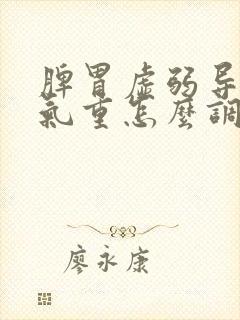 脾胃虚弱导
氣重怎麼調
廖永康